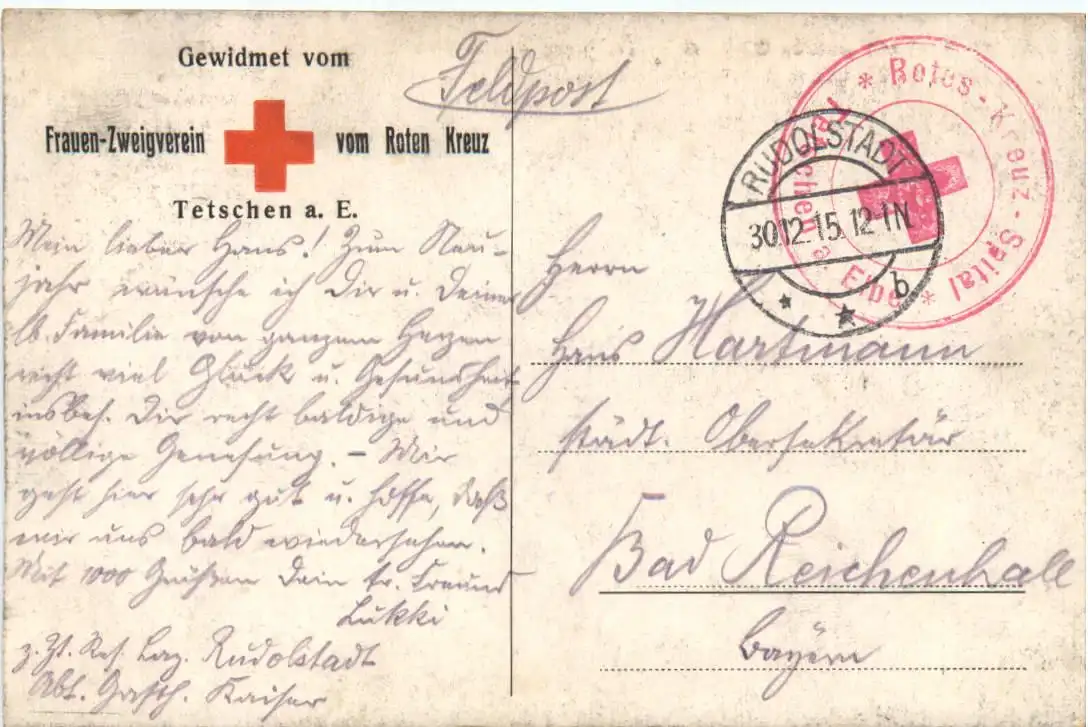 Gewidmet vom
Frauen-Zweigverein vom Roten Kreuz
Tetschen a. E.
Feldpost
Rotes-Kreuz-Spital * Tetschen a. Elbe *
RUDOLSTADT
30.12.15. 12-1N.
b
Mein lieber Hans! Zum Neu-
jahr wünsche ich Dir u. Deiner
lb. Familie von ganzem Herzen
recht viel Glück u. Gesundheit
insbes. Dir recht baldige und
völlige Genesung. – Mir
geht hier sehr gut u. hoffe, daß
wir uns bald wiedersehen.
Mit 1000 Grüßen Dein tr. Freund
Lukki
z. Zt. Res. Laz. Rudolstadt
Abt. Gasth. Kaiser
Herrn
Hans Hartmann
städt. Obersekretär
Bad Reichenhall
Bayern